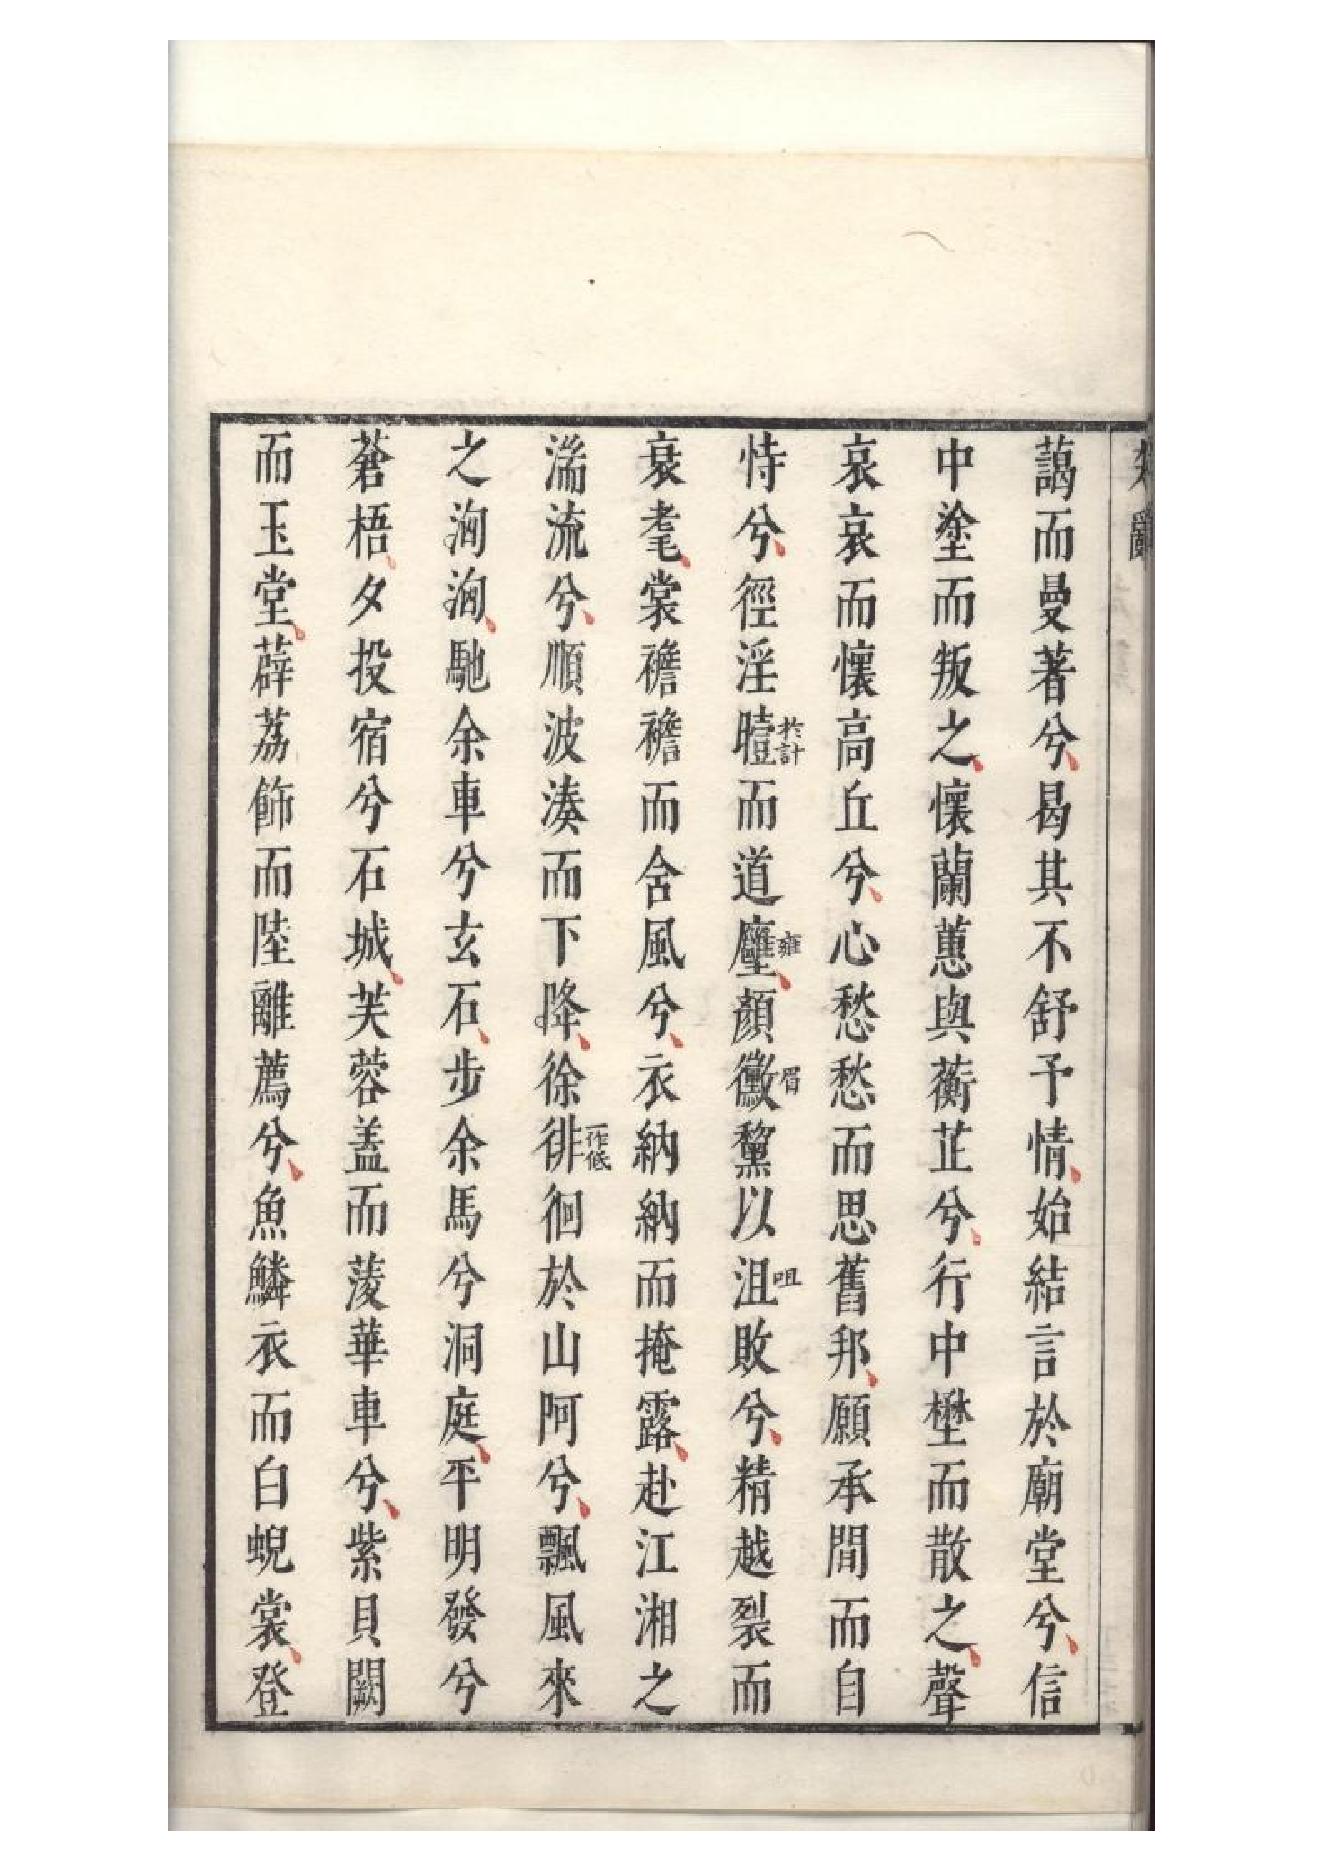 藹而曼著兮曷其不舒予情始結言於廟堂兮信
中塗而叛之懷蘭蕙與蘅芷兮行中壄而散之聲
哀哀而懷高丘兮心愁愁而思舊邦願承間而自
恃兮徑淫曀於計而道壅雍顏黴眉黧以沮咀敗兮精越裂而
衰耄裳襜襜而含風兮衣納納而掩露赴江湘之
湍流兮順波湊而下降徐徘一作低徊於山阿兮飄風來
之洶洶馳余車兮玄石步余馬兮洞庭平明發兮
蒼梧夕投宿兮石城芙蓉蓋而蔆華車兮紫貝闕
而玉堂薜荔飾而陸離薦兮魚鱗衣而白蜺裳登